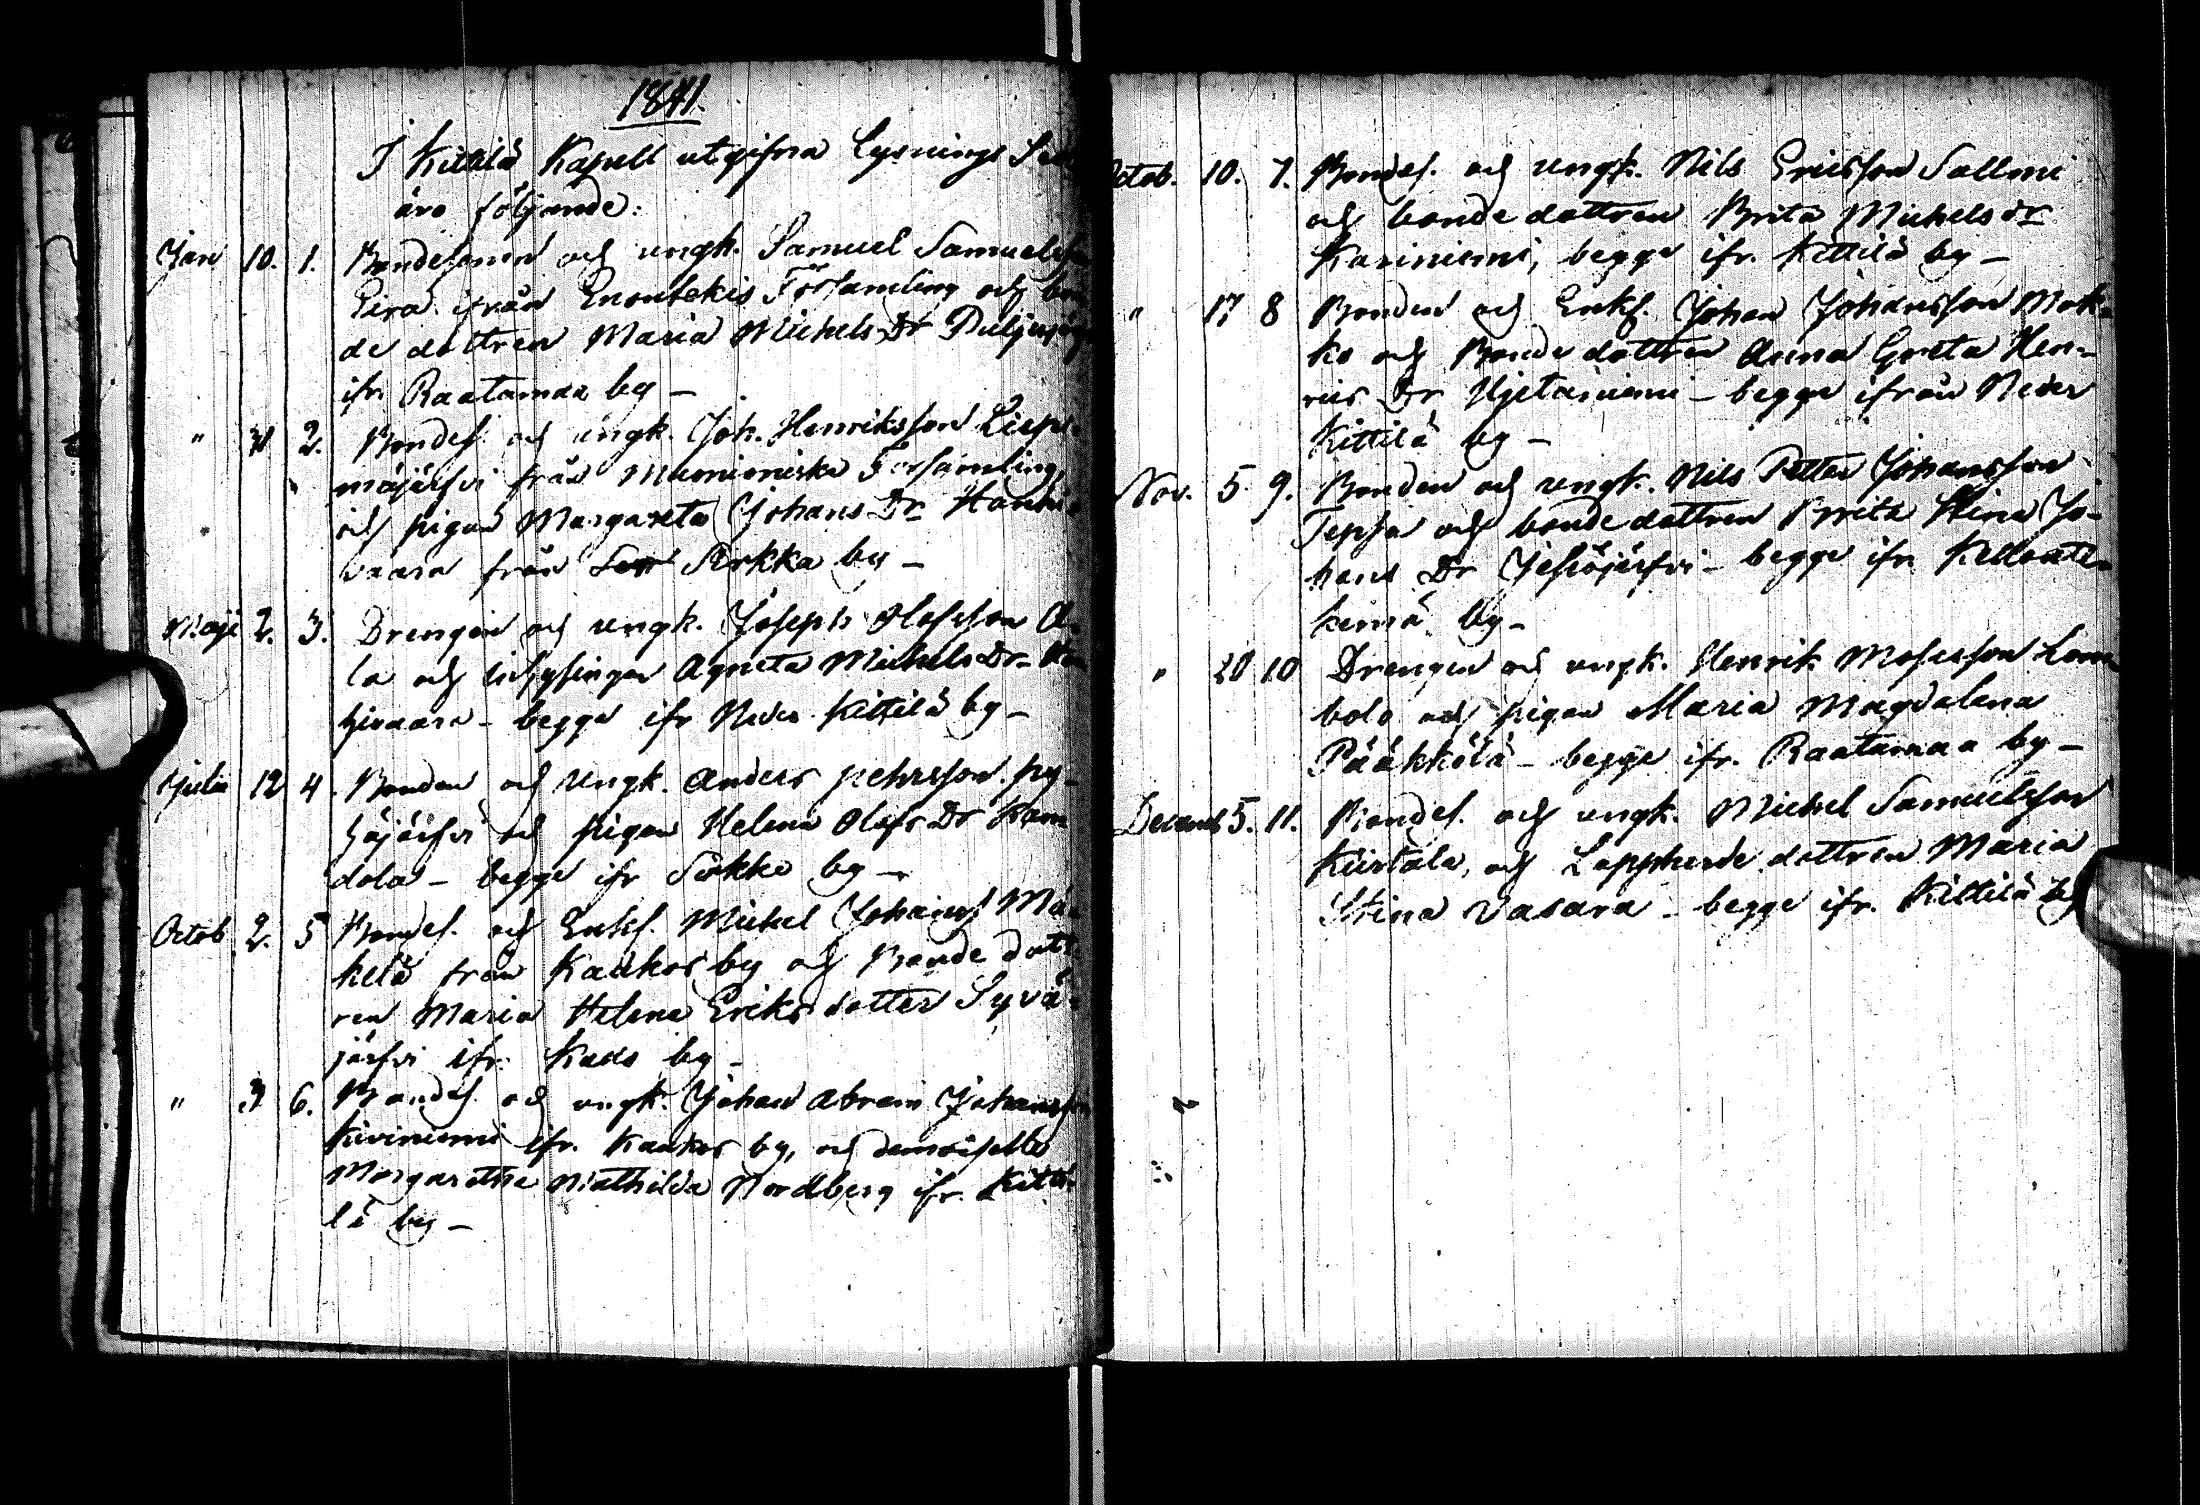 1841.
I Kittilä Kapell utgifna Lysnings
äro följande:
Jan 10. 1. Bondesonen och ungk. Samuel Samuelsson
Eira ifrån Enontekis Församling och bon
de dottren Maria Michels Dr Puljujärfvi
ifr. Raatamaa by –
" 31 2. Bondes. och ungk. Joh. Henriksson Liepi-
mäjärfvi från Muonioniska Församling,
och pigan Margareta Johans Dr Hanhi-
vaara från Sirkka by –
Maji 2. 3. Drengen och ungk. Joseph Olofsson A-
la och inhysingen Agneta Michels Dr
hjivaara – begge ifr Neder Kittilä by –
Julii 12 4. Bonden och Ungk. Anders Pehrsson Py-
häjärfvi och pigan Helena Olofs Dr Kan
dola – begge ifr Sirkka by –
Octob 2. 5 Bondes. och Enkl. Michel Johans Mä-
kelä från Kaukos by och Bonde dott-
ren Maria Helena Eriks dotter Syvä-
järfvi ifr. by –
" 3 6. Bondes. och ungk. Johan Abram Johansson
Kiviniemi ifr. Kaukos by, och demoiselle
Margaretha Mathilda Nordberg ifr. Kitti-
lä by –
Octob. 10. 7. Bondes. och ungk. Nils Ericsson Salmi
och bonde dottren Brita Michels dr
Kariniemi, begge ifr. Kittilä by –
" 17 8 Bonden och Enkl. Johan Johansson Mok-
ko och Bonde dottren Anna Greta Hen-
rics Dr Hjetaniemi – begge ifrån Neder
Kittilä by –
Nov. 5 9. Bonden och ungk. Nils Petter Johansson
Tepsa och bonde dottren Brita Stina Jo-
hans Dr Jesiöjärfvi – begge ifr. Kellonte-
kemä by –
" 20 10 Drengen och ungk. Henrik Mosesson Lom
bolo och pigan Maria Magdalena
Pääkkölä – begge ifr. Raatamaa by –
Decemb 5. 11. Bondes. och ungk. Michel Samuelsson
Kustula, och Lappherde dottren Maria
Stina Vasara – begge ifr. Kittilä by